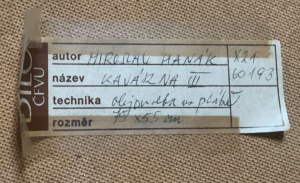 Dílo
ČFVU
autor MIROSLAV HANÁK
název KAVÁRNA III
technika olejomalba na plátně
rozměr 75 x 55 cm
X21
60193